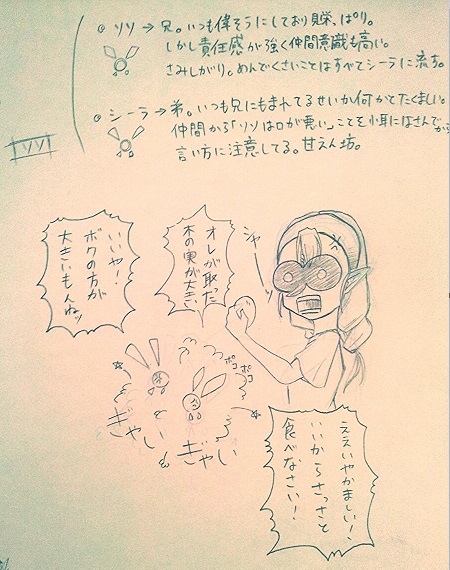 ソソ → 兄。いつも偉そうにしており見栄っぱり。
しかし責任感が強く仲間意識も高い。
さみしがり。めんどくさいことはすべてシーラに流す。
シーラ → 弟。いつも兄にもまれてるせいか何かとたくましい。
仲間から「ソソは口が悪い」ことを小耳にはさんでから
言い方に注意してる。甘えん坊。
ソソ
オレが取った
木の実が大きい
いいや!
ボクの方が
大きいもんねッ
シャーッ
ポコ
ポコ
ぎゃい
ぎゃい
ええいやかましい!
いいからさっさと
食べなさい!